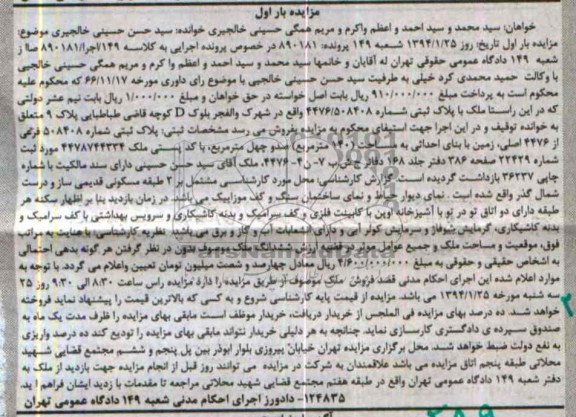 مزایده بار اول
خواهان: سید محمد و سید احمد و اعظم واکرم و مریم همگی حسینی خالجیری خوانده: سید حسن حسینی خالجیری موضوع:
مزایده بار اول تاریخ: روز ۱۳۹۴/۱/۲۵ شعبه ۱۴۹ پرونده: ۸۹۰۱۸۱ در خصوص پرونده اجرایی به کلاسه ۱۴۹اجرا/۸۹۰۱۸۱ صا از
شعبه ۱۴۹ دادگاه عمومی حقوقی تهران له آقایان و خانمها سید محمد و سید احمد و اعظم وا کرم و مریم همگی حسینی خالجیری
با وکالت حمید محمدی کرد خیلی به طرفیت سید حسن حسینی خالجیی با موضوع رای داوری مورخه ۶۶/۱۱/۱۷ که محکوم علیه
محکوم است به پرداخت مبلغ ۹۱۰/۰۰۰/۰۰۰ ریال بابت اصل خواسته در حق خواهان و مبلغ ۱/۰۰۰/۰۰۰ ریال بابت نیم عشر دولتی
که در این راستا ملک با پلاک ثبتی شماره ۴۴۷۶/۵۰۸۴۰۸ واقع در شهرک والفجر بلوک D کوچه قاضی طباطبایی پلاک ۹ متعلق
به خوانده توقیف و در این اجرا جهت استیفای محکوم به مزایده بفروش می رسد مشخصات ثبتی: پلاک ثبتی شماره ۵۰۸۴۰۸ فرعی
از ۴۴۷۶ اصلی، زمین با بنای احداثی به مساحت (۱۴۰ مترمربع) صدو چهل مترمربع، با کد پستی ملک ۴۴۷۸۷۴۴۳۳۴ مورد ثبت
شماره ۲۲۴۲۹ صفحه ۳۸۶ دفتر جلد ۱۶۸ دفاتر ج غرب ۷-ن ۲-۴۴۷۶، ملک آقای سید حسن حسینی دارای سند مالکیت با شماره
چاپی ۳۶۲۳۷ بازداشت گردیده است. گزارش کارشناسی: محل مورد کارشناسی مشتمل بر ۲ طبقه مسکونی قدیمی ساز و درست
شمال گذر واقع شده است. نمای دیوار حیاط و نمای ساختمان سنگ و کف موزاییک می باشد. در زمان بازدید بنا بر اظهار سکنه هر
طبقه دارای دو اتاق تو در تو با آشپزخانه اوپن با کابینت فلزی و کف سرامیک و بدنه کاشیکاری و سرویس بهداشتی با کف سرامیک و
بدنه کاشیکاری، گرمایش شوفاژ و سرمایش کولر آبی و دارای انشعابات آب و گاز و برق می باشد. نظریه کارشناسی: با عنایت به مراتب
فوق، موقعیت و مساحت ملک و جمیع عوامل موثر در قضیه ارزش ششدانگ ملک موصوف بدون در نظر گرفتن هر گونه بدهی احتمالی
به اشخاص حقیقی و حقوقی به مبلغ ۴/۶۰۰/۰۰۰/۰۰۰ ریال معادل چهارصد و شصت میلیون تومان تعیین واعلام می گردد. با توجه به
موارد اعلام شده این اجرای احکام مدنی قصد فروش ملک موصوف از طریق مزایده را دارد مزایده راس ساعت ۸:۳۰ الی ۹:۳۰ روز ۲۵
سه شنبه مورخه ۱۳۹۴/۱/۲۵ می باشد. مزایده از قیمت پایه کارشناسی شروع و به کسی که بالاترین قیمت را پیشنهاد نماید فروخته
خواهد شد. ده درصد بهای مزایده فی المجلس از خریدار دریافت، خریدار موظف است مابقی بهای مزایده را ظرف مدت یک ماه به
صندوق سپرده ی دادگستری کارسازی نماید. چنانچه به هر دلیلی خریدار نتواند مابقی بهای مزایده را تودیع کند ده درصد واریزی
به نفع دولت ضبط خواهد شد. محل برگزاری مزایده تهران خیابان پیروزی بلوار ابوذر بین پل پنجم و ششم مجتمع قضایی شهید
محلاتی طبقه پنجم اتاق مزایده می باشد علاقمندان به شرکت در مزایده می توانند روز قبل از انجام مزایده جهت بازدید از ملک به
دفتر شعبه ۱۴۹ دادگاه عمومی تهران واقع در طبقه هفتم مجتمع قضایی شهید محلاتی مراجعه تا مقدمات بازدید ایشان فراهم آید.
۱۲۴۸۳۵- دادورز اجرای احکام مدنی شعبه ۱۴۹ دادگاه عمومی تهران